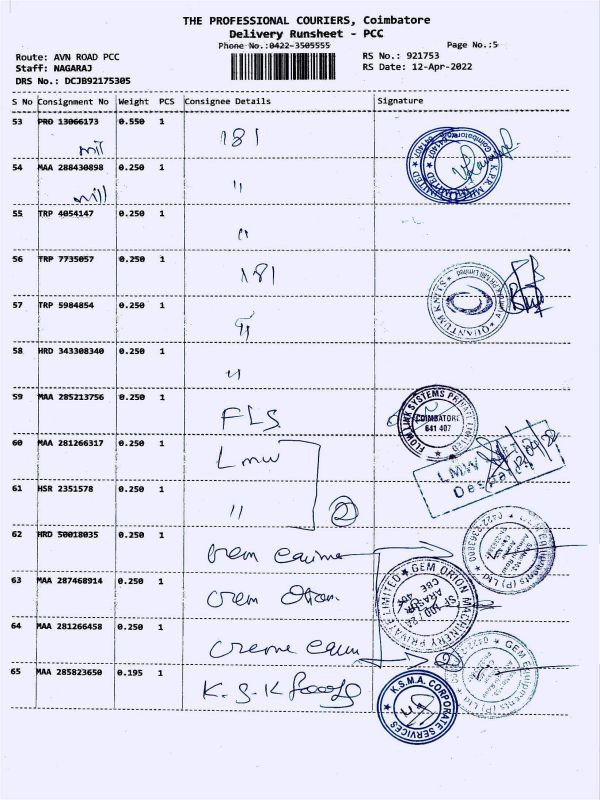 THE PROFESSIONAL COURIERS, Coimbatore
Delivery Runsheet - PCC
Phone No.:0422-3505555
Page No.:5
Route: AVN ROAD PCC
RS No.: 921753
Staff: NAGARAJ
RS Date: 12-Apr-2022
DRS No.: DCJB92175305
S No Consignment No Weight PCS Consignee Details Signature
53 PRO 13066173 0.550 1 181
mil
54 MAA 288430898 0.250 1 "
mill
55 TRP 4054147 0.250 1 "
56 TRP 7735057 0.250 1 181
57 TRP 5984854 0.250 1 "
58 HRD 343308340 0.250 1 "
59 MAA 285213756 0.250 1 FLS
FLOW LINK SYSTEMS PRIVATE LIMITED
COIMBATORE
641 407
60 MAA 281266317 0.250 1 Lmw
LMW
61 HSR 2351578 0.250 1 " 2
62 HRD 50018035 0.250 1
GEM Equipments (P) Ltd
63 MAA 287468914 0.250 1
GEM ORION MACHINERY PRIVATE LIMITED
64 MAA 281266458 0.250 1
GEM Equipments (P) Ltd
65 MAA 285823650 0.195 1 K.S.K
K.S.M.A. CORPORATE SERVICES